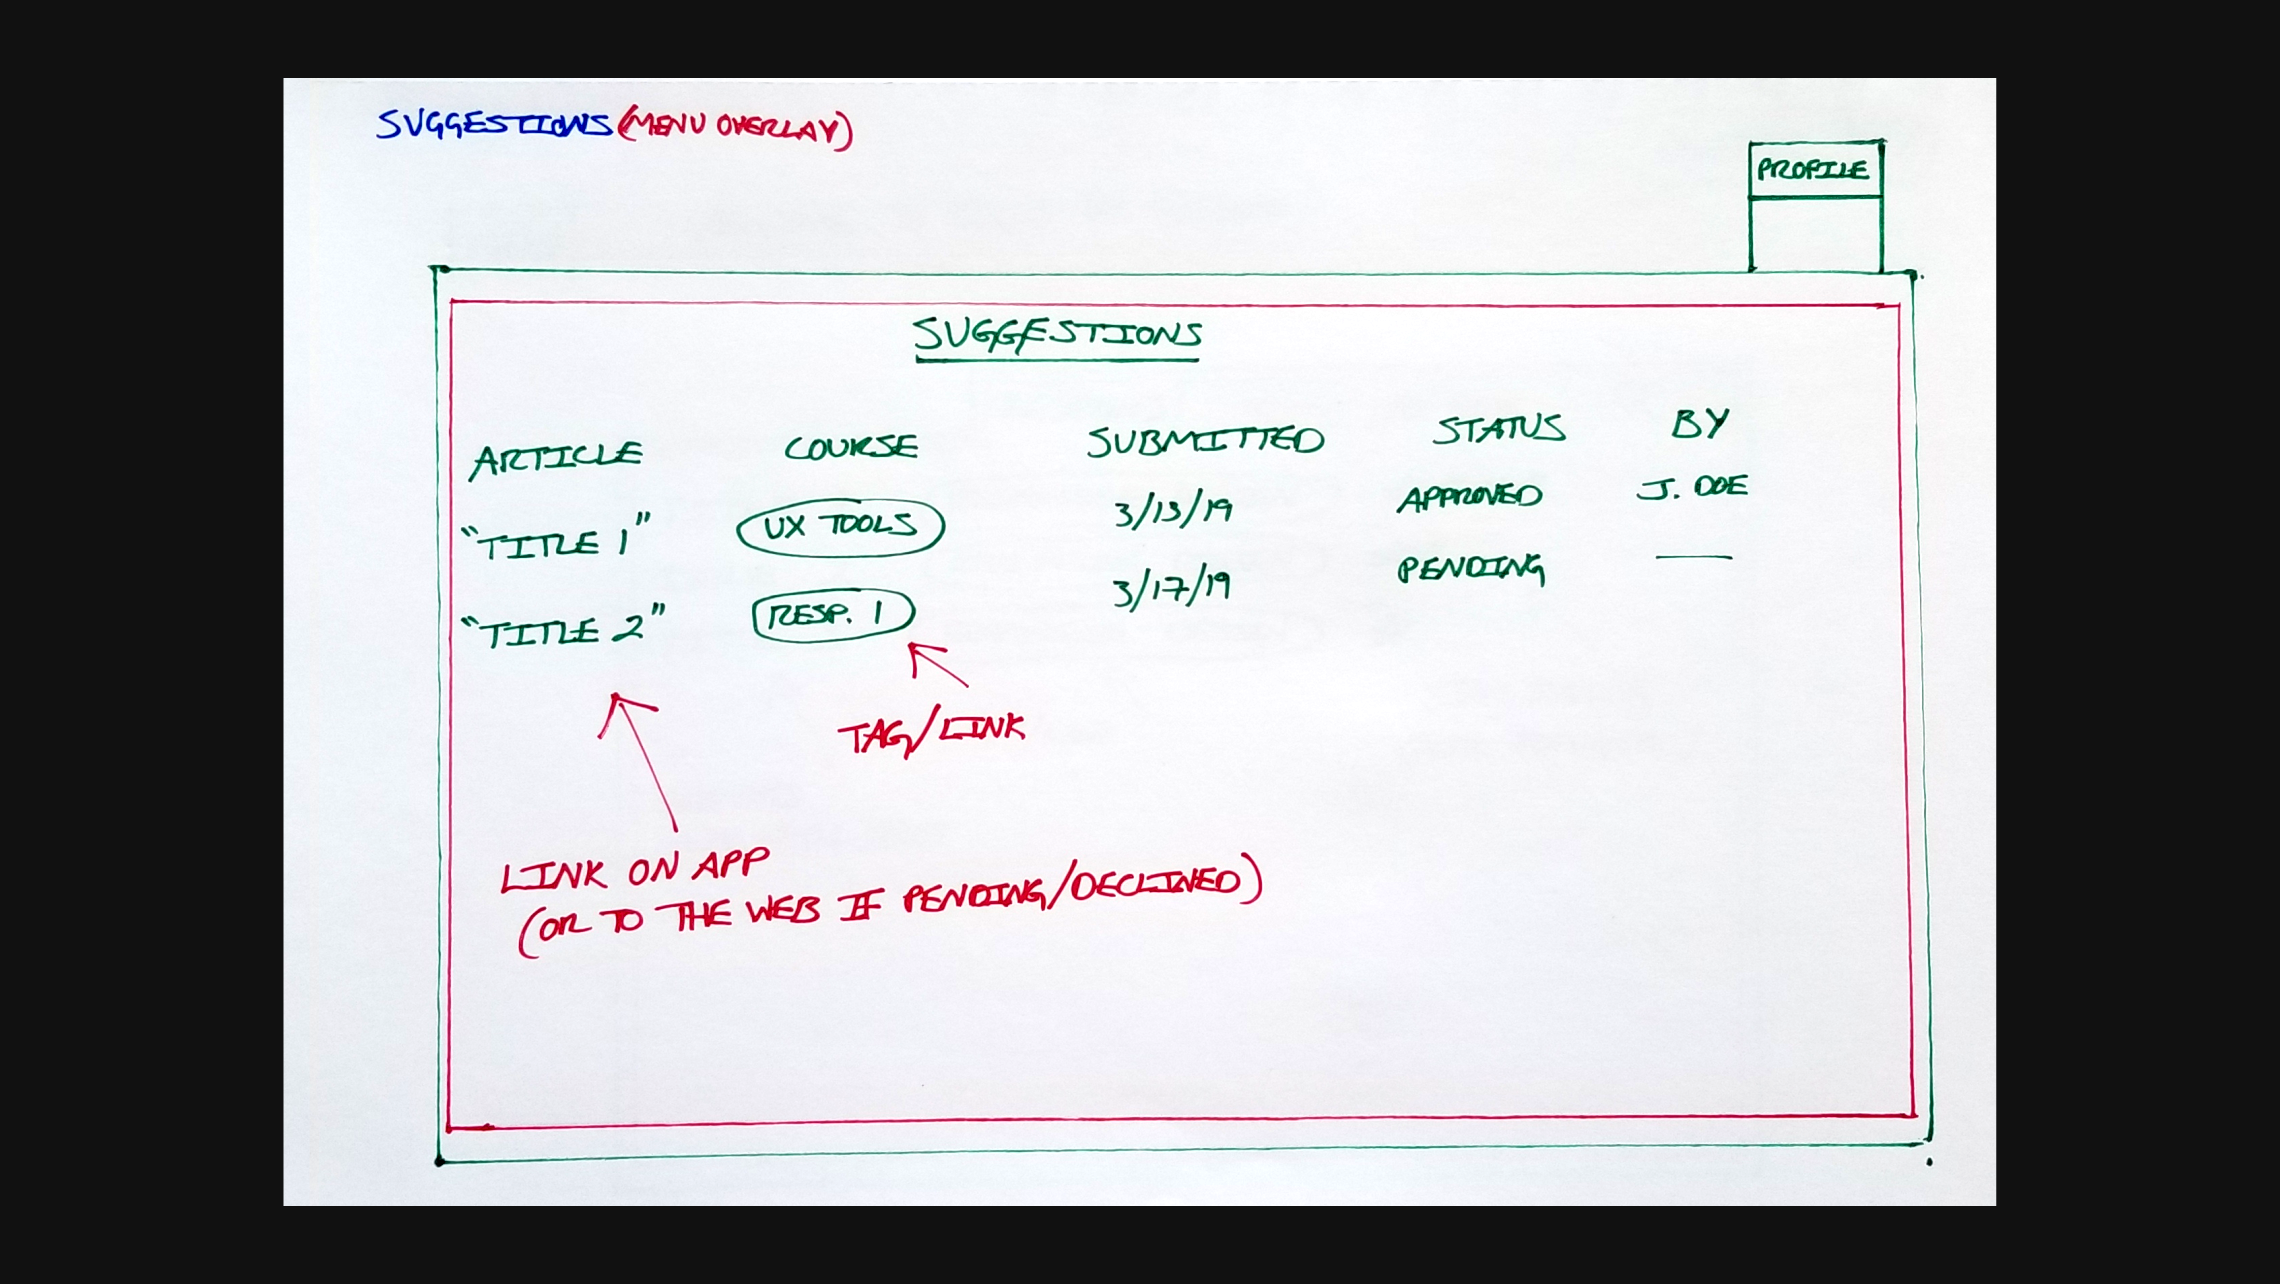 SUGGESTIONS (MENU OVERLAY)
PROFILE
SUGGESTIONS
ARTICLE COURSE SUBMITTED STATUS BY
"TITLE 1" UX TOOLS 3/13/19 APPROVED J. DOE
"TITLE 2" RESP. 1 3/17/19 PENDING —
TAG/LINK
LINK ON APP
(OR TO THE WEB IF PENDING/DECLINED)